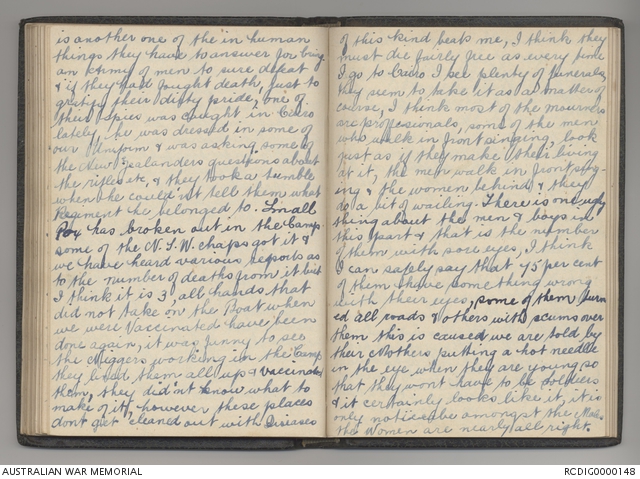 is another one of the in human
things they have to answer for bring
an Army of men to sure defeat
& if they had fought death, just to
gratify their dirty pride, one of
their spies was caught in Cairo
lately, he was dressed in some of
our Uniform & was asking some of
the New Zealanders questions about
the rifles etc, & they took a tumble
when he could'nt tell them what
Regiment he belonged to. Small
Pox has broken out in the Camp
some of the N.S.W. chaps got it &
we have heard various reports as
to the number of deaths from it but
I think it is 3, all hands that
did not take on the Boat when
we were Vaccinated have been
done again, it was funny to see
the Niggers working in the Camp
they lined them all up & Vaccinated
them, they did'nt know what to
make of it, however these places
dont get cleaned out with Diseases
of this kind beats me, I think they
must die fairly free as every time
I go to Cairo I see plenty of funerals
they seem to take it as a matter of
course, I think most of the mourners
are proffesionals, some of the men
who walk in front singing, look
just as if they make their living
at it, the men walk in front sing-
ing & the women behind & they
do a bit of wailing. There is one ugly
thing about the men & boys in
this part & that is the number
of them with sore eyes, I think
I can safely say that 75 per cent
of them have something wrong
with their eyes, some of them turn
ed all roads & others with scums over
them this is caused we are told by
their Mothers putting a hot needle
in the eye when they are young so
that they wont have to be soldiers
& it certainly looks like it, it is
only noticeable amongst the Males
the Women are nearly all right.
AUSTRALIAN WAR MEMORIAL
RCDIG0000148